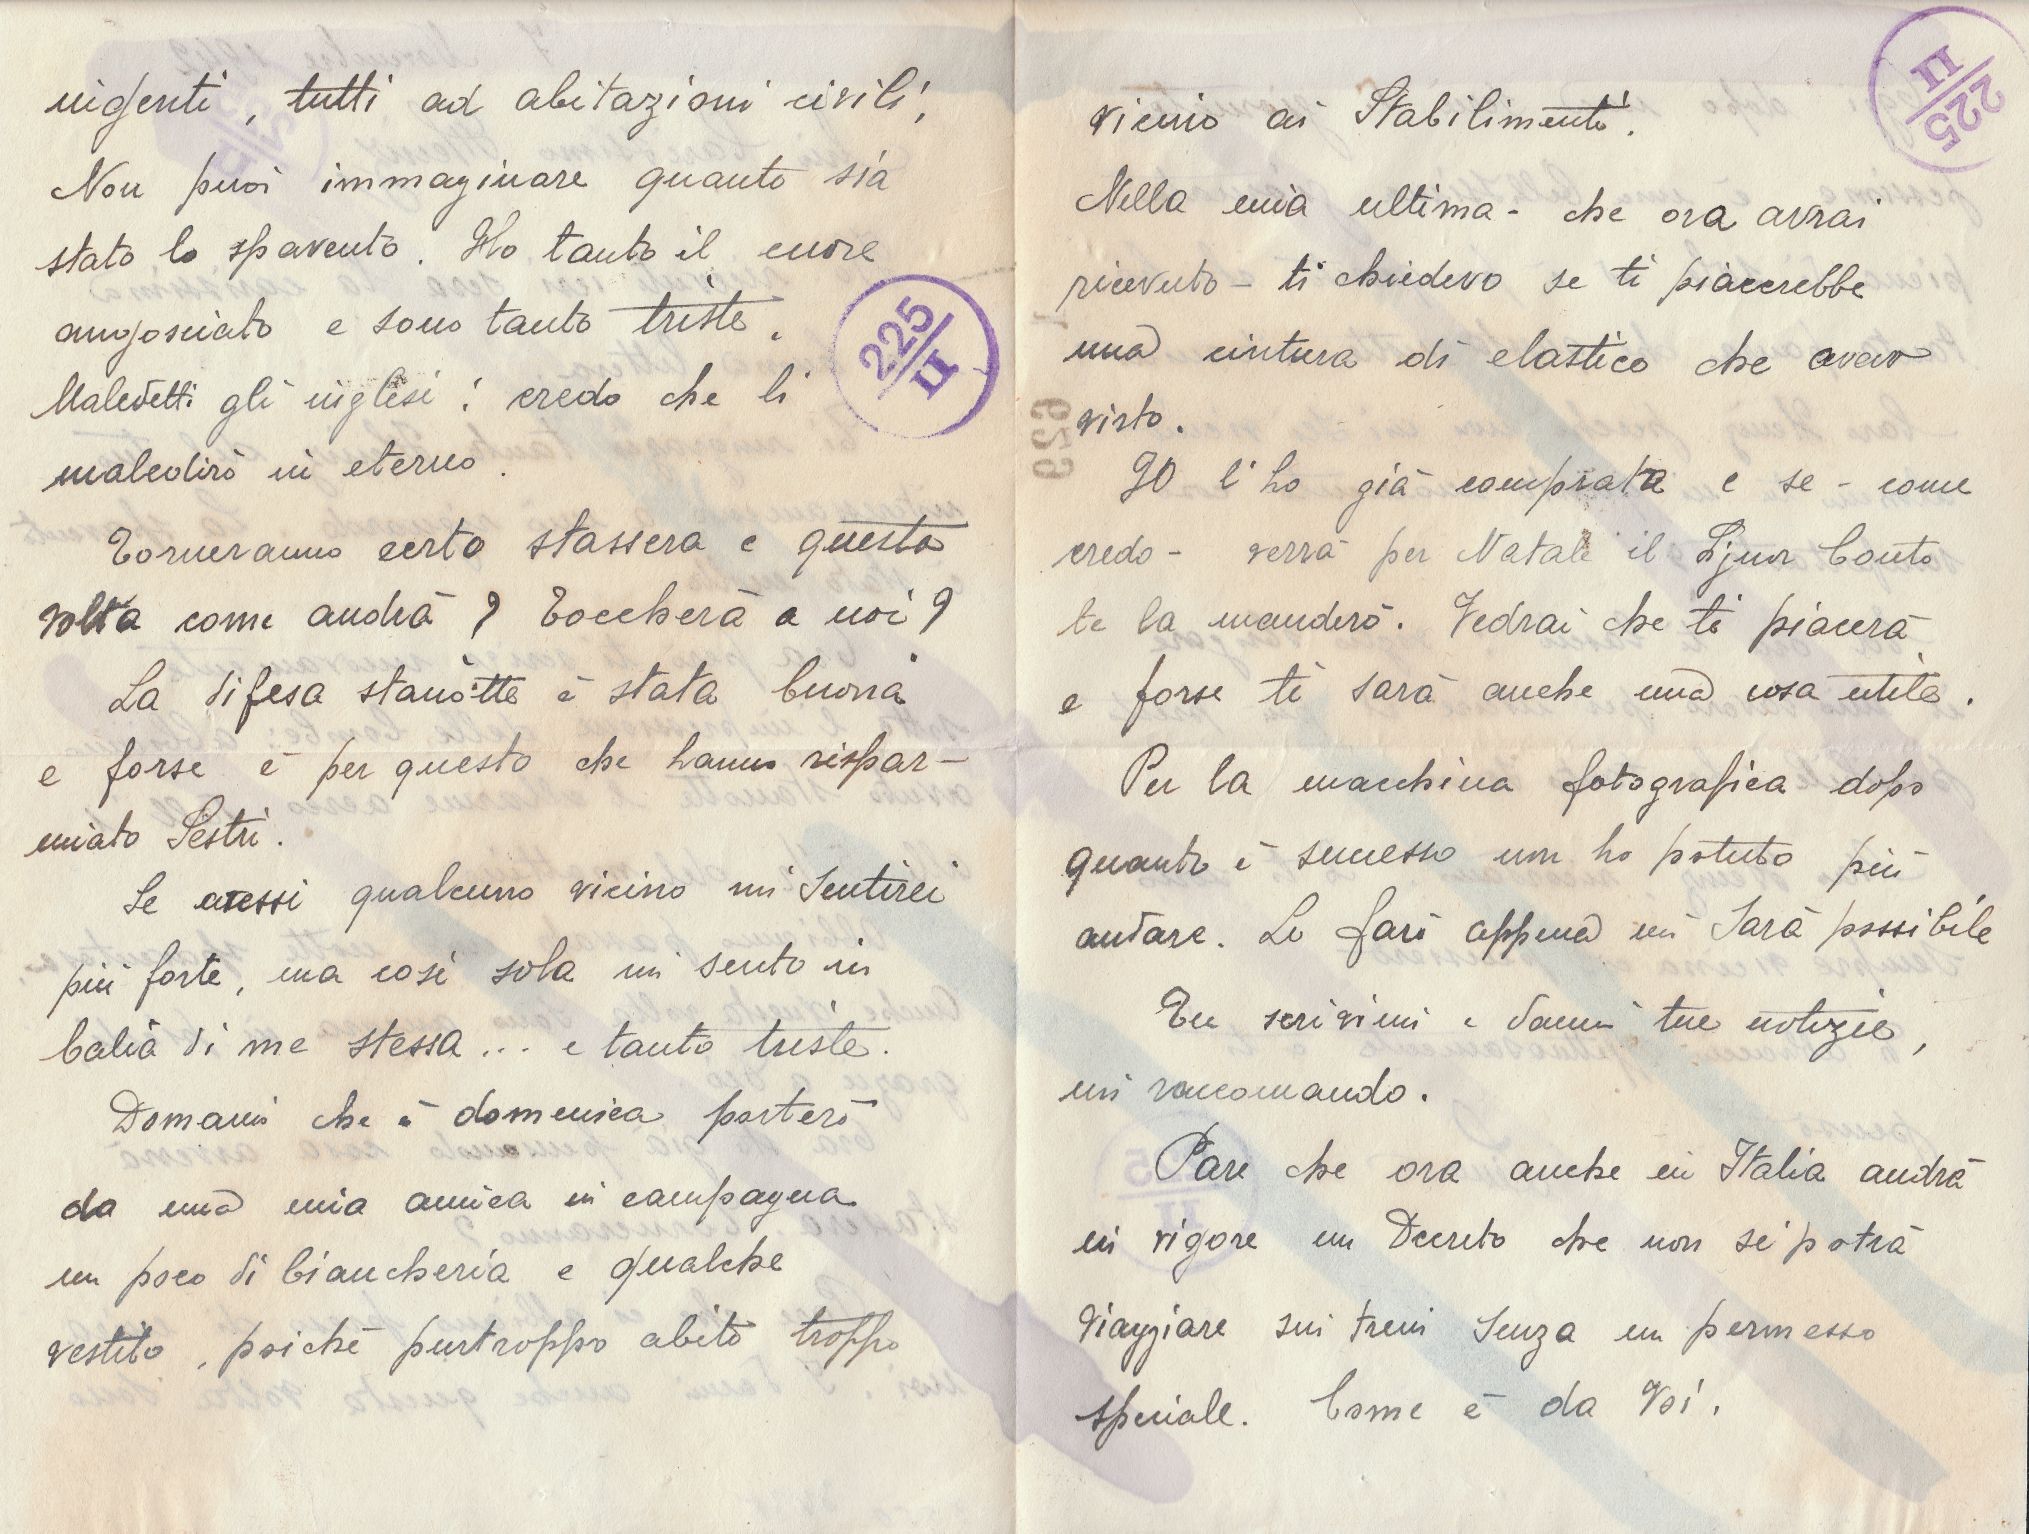 ingenti, tutti ad abitazioni civili,
Non puoi immaginare quanto sia
stato lo spavento. Ho tanto il cuore
angosciato e sono tanto triste.
Maledetti gli inglesi! credo che li
maledirò in eterno.
Torneranno certo stassera e questa
volta come andrà? Toccherà a noi?
La difesa stanotte è stata buona
e forse è per questo che hanno rispar-
miato Sestri.
Se avessi qualcuno vicino mi sentirei
più forte, ma così sola mi sento in
balia di me stessa... e tanto triste.
Domani che è domenica porterò
da una mia amica in campagna
un poco di biancheria e qualche
vestito, poichè purtroppo abito troppo
225
II
vicino ai Stabilimenti.
Nella mia ultima - che ora avrai
ricevuto - ti chiedevo se ti piacerebbe
una cintura di elastico che avevo
visto.
IO l'ho già comprata e se - come
credo - verrà per Natale il Signor Conto
te la manderò. Vedrai che ti piacerà
e forse ti sarà anche una cosa utile.
Per la macchina fotografica dopo
quanto è successo non ho potuto più
andare. Lo farò appena mi sarà possibile
Tu scrivimi e dammi tue notizie,
mi raccomando.
Pare che ora anche in Italia andrà
in vigore un Decreto che non si potrà
viaggiare sui treni senza un permesso
speciale. Come è da Voi.
225
II